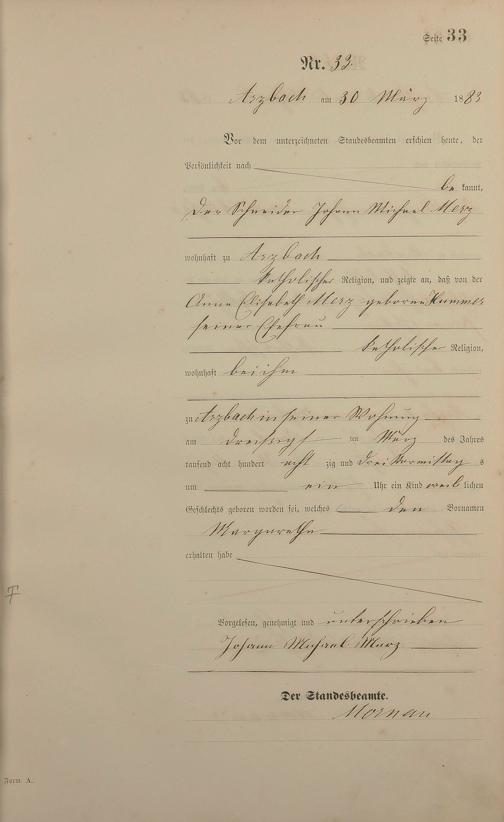 Seite 33
Nr. 33.
Arzbach am 30 März 1883
Vor dem unterzeichneten Standesbeamten erschien heute, der
Persönlichkeit nach
be kannt,
der Schneider Johann Michael Merz
wohnhaft zu Arzbach
katholischer Religion, und zeigte an, daß von der
Anna Elisabeth Merz geborene Kummer
seiner Ehefrau
katholischer Religion,
wohnhaft bei ihm
zu Arzbach in seiner Wohnung
am dreißigsten ten März des Jahres
tausend acht hundert acht zig und drei Vormittag s
um ein Uhr ein Kind weib lichen
Geschlechts geboren worden sei, welches den Vornamen
Margarethe
erhalten habe
Vorgelesen, genehmigt und unterschrieben
Johann Michael Merz
Der Standesbeamte.
Form A.